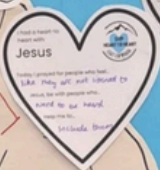 I had a heart to
heart with:
Jesus
HEART to HEART
Today I prayed for people who feel...
like they are not listened to
Jesus, be with people who...
need to be heard
Help me to...
include them